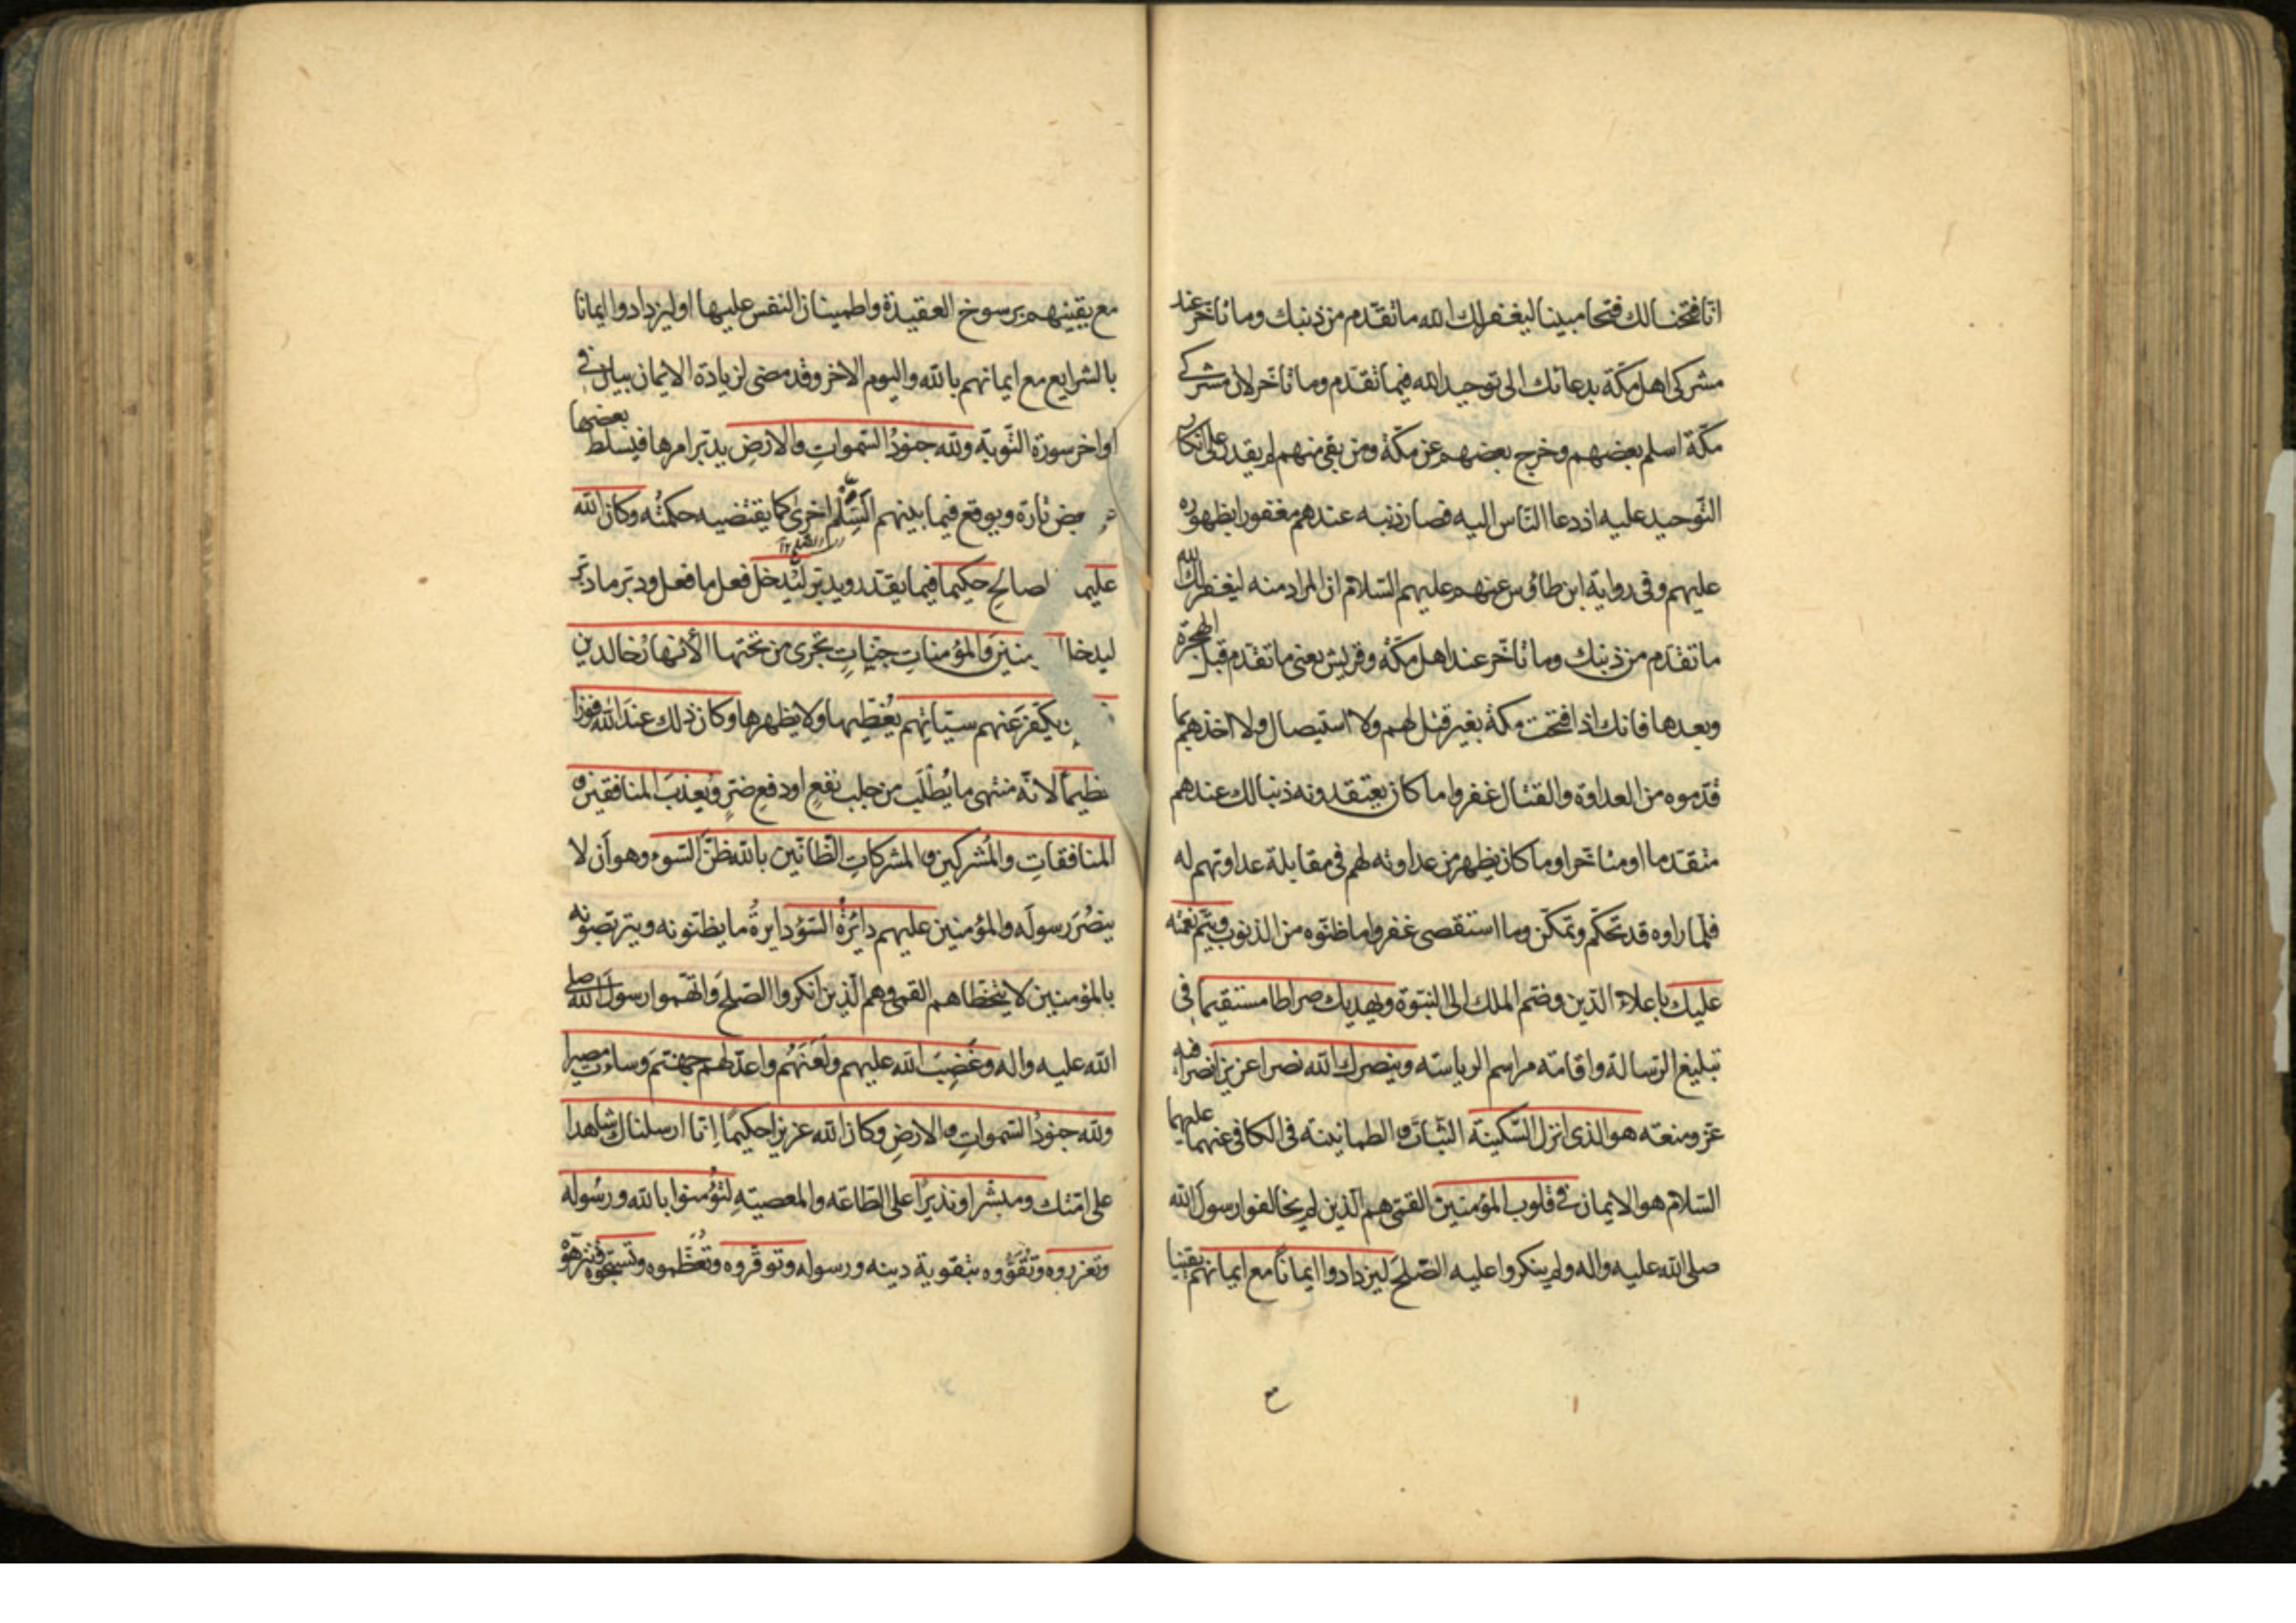 انا فتحنا لك فتحا مبينا ليغفر لك الله ما تقدم من ذنبك وما تأخر عند
مشركى اهل مكّة بدعائك الى توحيد الله فيما تقدم وما تأخر لان مشركى
مكّة اسلم بعضهم وخرج بعضهم عن مكّة ومن بقى منهم لم يقدر على انكار
التّوحيد عليه اذ دعا النّاس اليه فصار ذنبه عندهم مغفورا بظهوره
عليهم وفى رواية ابن طاؤس عنهم عليهم السّلام ان المراد منه ليغفر لك الله
ما تقدّم من ذنبك وما تأخّر عند اهل مكّة وقريش يعنى ما تقدم قبل الهجرة
وبعدها فانك اذا فتحت مكّة بغير قتل لهم ولا استيصال ولا اخذهم بما
قدّموه من العداوة والقتال غفروا ما كان يعتقدونه ذنبا لك عندهم
متقدّما او متأخرا وما كان يظهر من عداوته لهم فى مقابلة عداوتهم له
فلمّا راوه قد تحكّم وتمكّن وما استقصى غفروا ما ظنّوه من الذنوب ويتم نعمته
عليك باعلاء الدّين وضمّ الملك الى النبّوة ويهديك صراطا مستقيما فى
تبليغ الرّسالة واقامة مراسم الرياسة وينصرك الله نصرا عزيزا نصرا فيه
عزّ ومنعة هو الذى انزل السّكينة الثّبات والطمانينة فى الكافى عنهما عليهما
السّلام هو الايمان فى قلوب المؤمنين القمّى هم الّذين لم يخالفوا رسول الله
صلى الله عليه واله ولم ينكروا عليه الصّلح ليزدادوا ايمانًا مع ايمانهم يقينا
مع يقينهم برسوخ العقيدة واطمينان النفس عليها او ليزدادوا ايمانا
بالشرايع مع ايمانهم بالله واليوم الاخر وقد مضى لزيادة الايمان بيان فى
اواخر سورة التّوبة ولله جنودُ السّموات والارضِ يدبّر امرها فيسلط بعضها
بعض تارة ويوقع فيما بينهم السّلم اخرى كما يقتضيه حكمتُه وكان الله
عليما لصالح حكيما فيما يقتدر ويدبر ليُدخل فعل ما فعل ودبّر ما دبّر
ليدخل منين والمؤمنات جنّاتٍ تجرى من تحتها الأنهارُ خالدين
يكفّر عنهم سيّأتِهم يُغطّيها ولا يظهرها وكان ذلك عند الله فوزا
ظيمًا لانّه منتهى ما يُطلَب من جلب نفعٍ او دفع ضرٍّ ويُعذّب المنافقين و
المنافقاتِ والمُشركين والمشركاتِ الظّانّين بالله ظنّ السّوء وهو أن لا
ينصُرَ رسولَه والمؤمنين عليهم دائرةُ السّوْءِ دايرةُ ما يظنّونه ويتربّصونه
بالمؤمنين لا يتخطّاهم القمى وهم الّذين أنكروا الصّلح واتّهموا رسول الله صلى
الله عليه واله وغَضِبَ الله عليهم ولَعَنَهُم واعدّ لهم جهنّمَ وساءت مصيرا
ولله جنودُ السّمواتِ والارضِ وكان الله عزيزا حكيمًا إنّا ارسلناك شاهدا
على امّتك ومبشّرا ونذيرًا على الطّاعة والمعصيةِ لتؤمنوا بالله ورسُوله
وتعزروه وتُقَوُّوه بتقوية دينه ورسوله وتوقّروه وتُعَظّموه وتسبّحوه